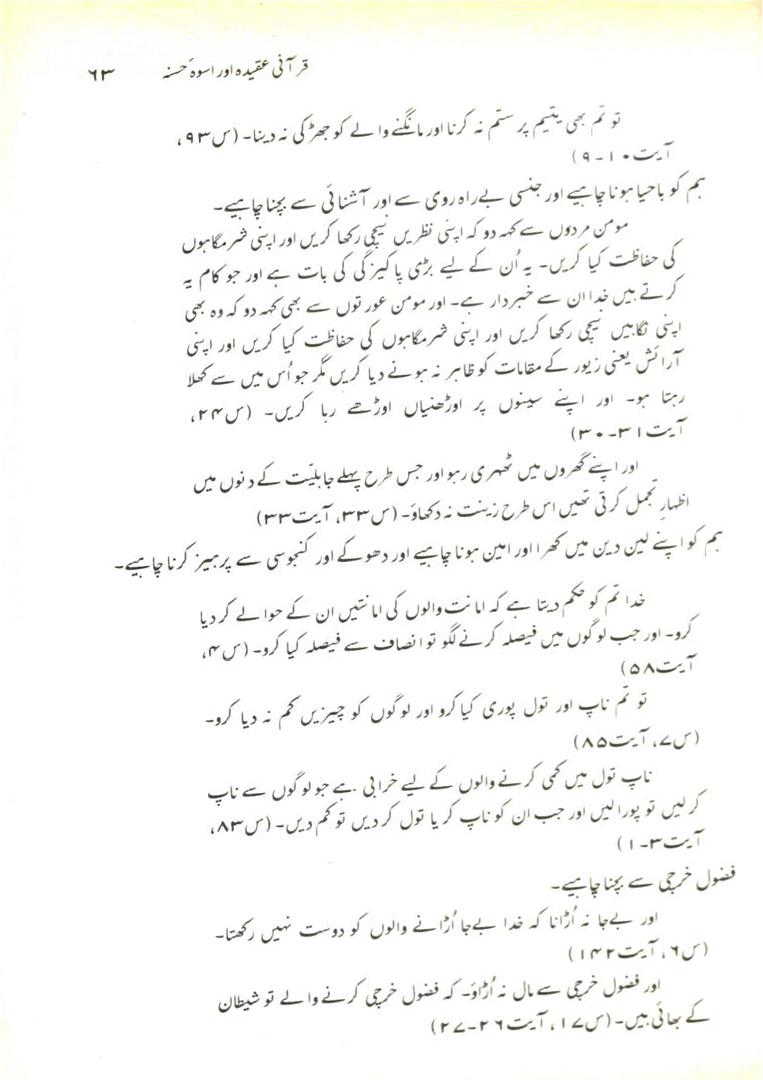 قرآنی عقیدہ اور اسوۂ حسنہ ۶۳
تو تم بھی یتیم پر ستم نہ کرنا اور مانگنے والے کو جھڑکی نہ دینا۔ (س۹۳،
آیت۱۰-۹)
ہم کو باحیا ہونا چاہیے اور جنسی بے راہ روی سے اور آشنائی سے بچنا چاہیے۔
مومن مردوں سے کہہ دو کہ اپنی نظریں نیچی رکھا کریں اور اپنی شرمگاہوں
کی حفاظت کیا کریں۔ یہ اُن کے لیے بڑی پاکیزگی کی بات ہے اور جو کام یہ
کرتے ہیں خدا ان سے خبردار ہے۔ اور مومن عورتوں سے بھی کہہ دو کہ وہ بھی
اپنی نگاہیں نیچی رکھا کریں اور اپنی شرمگاہوں کی حفاظت کیا کریں اور اپنی
آرائش یعنی زیور کے مقامات کو ظاہر نہ ہونے دیا کریں مگر جو اُس میں سے کھلا
رہتا ہو۔ اور اپنے سینوں پر اوڑھنیاں اوڑھے رہا کریں۔ (س۲۴،
آیت۳۱-۳۰)
اور اپنے گھروں میں ٹھہری رہو اور جس طرح پہلے جاہلیّت کے دنوں میں
اظہارِ تجمل کرتی تھیں اس طرح زینت نہ دکھاؤ۔ (س۳۳، آیت۳۳)
ہم کو اپنے لین دین میں کھرا اور امین ہونا چاہیے اور دھوکے اور کنجوسی سے پرہیز کرنا چاہیے۔
خدا تم کو حکم دیتا ہے کہ امانت والوں کی امانتیں ان کے حوالے کر دیا
کرو۔ اور جب لوگوں میں فیصلہ کرنے لگو تو انصاف سے فیصلہ کیا کرو۔ (س۴،
آیت۵۸)
تو تم ناپ اور تول پوری کیا کرو اور لوگوں کو چیزیں کم نہ دیا کرو۔
(س۷، آیت۸۵)
ناپ تول میں کمی کرنے والوں کے لیے خرابی ہے جو لوگوں سے ناپ
کر لیں تو پورا لیں اور جب ان کو ناپ کر یا تول کر دیں تو کم دیں۔ (س۸۳،
آیت۳-۱)
فضول خرچی سے بچنا چاہیے۔
اور بےجا نہ اُڑانا کہ خدا بےجا اُڑانے والوں کو دوست نہیں رکھتا۔
(س۶، آیت۱۴۲)
اور فضول خرچی سے مال نہ اُڑاؤ۔ کہ فضول خرچی کرنے والے تو شیطان
کے بھائی ہیں۔ (س۱۷، آیت۲۶-۲۷)